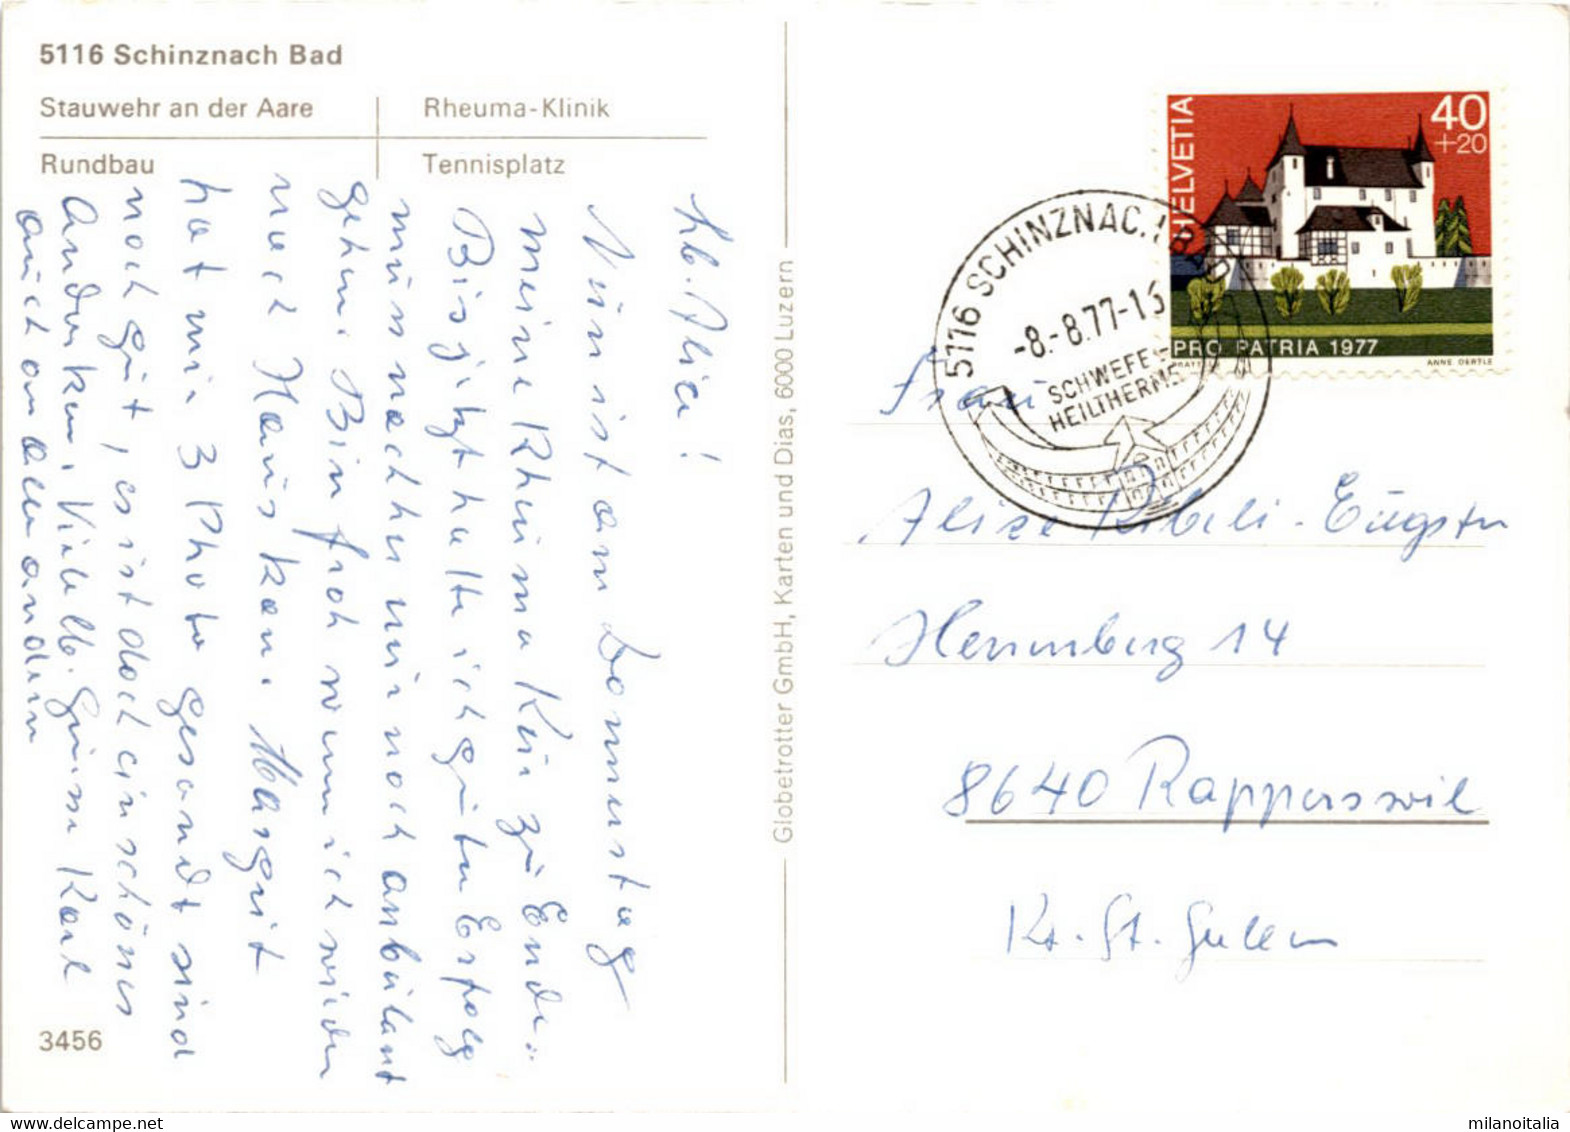 5116 Schinznach Bad
Stauwehr an der Aare
Rheuma-Klinik
Rundbau
Tennisplatz
Lb. Alice!
Nun ist am Donnerstag
meine Rheuma Kur zu Ende.
Bis jetzt hatte ich guten Erfolg
muss nachher nur noch ambulant
gehen. Bin froh wenn ich wieder
nach Haus kan. Margrit
hat mir 3 Photo gesandt sind
noch gut, es ist doch ein schönes
Andenken. Viele lb. Grüsse Karl
auch an alle andern
3456
Globetrotter GmbH, Karten und Dias, 6000 Luzern
HELVETIA
40
+20
PRO PATRIA 1977
ANNE OERTLE
5116 SCHINZNACH BAD
-8.-8.77-16
SCHWEFEL
HEILTHERME
Frau
Alice Eugster
Herrenberg 14
8640 Rapperswil
Kt. St. Gallen
milanoitalia